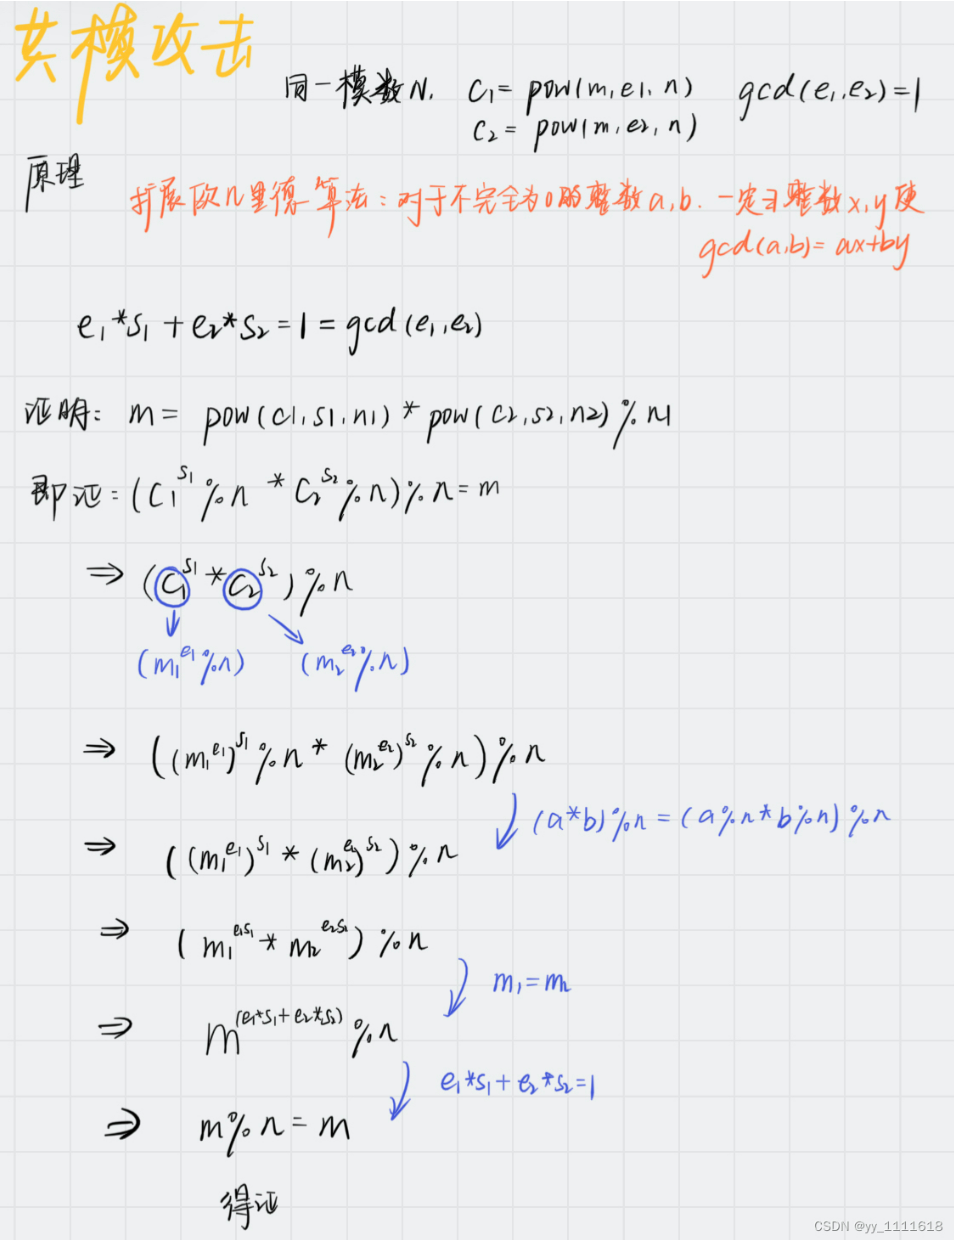 共模攻击
同一模数N. C₁ = pow(m, e1, n) gcd(e₁, e₂) = 1
C₂ = pow(m, e2, n)
原理
扩展欧几里德算法：对于不完全为0的整数a,b. 一定∃整数x,y使
gcd(a,b) = ax+by
e₁*s₁ + e₂*s₂ = 1 = gcd(e₁, e₂)
证明： m = pow(c1, s1, n1) * pow(c2, s2, n2) % n1
即证：(C₁^s₁ % n * C₂^s₂ % n) % n = m
⇒ (C₁^s₁ * C₂^s₂) % n
(m₁^e₁ % n) (m₂^e₂ % n)
⇒ ((m₁^e₁)^s₁ % n * (m₂^e₂)^s₂ % n) % n
(a*b)%n = (a%n*b%n)%n
⇒ ((m₁^e₁)^s₁ * (m₂^e₂)^s₂) % n
⇒ (m₁^e₁s₁ * m₂^e₂s₂) % n
m₁ = m₂
⇒ m^(e₁*s₁+e₂*s₂) % n
e₁*s₁ + e₂*s₂ = 1
⇒ m % n = m
得证
CSDN @yy_1111618